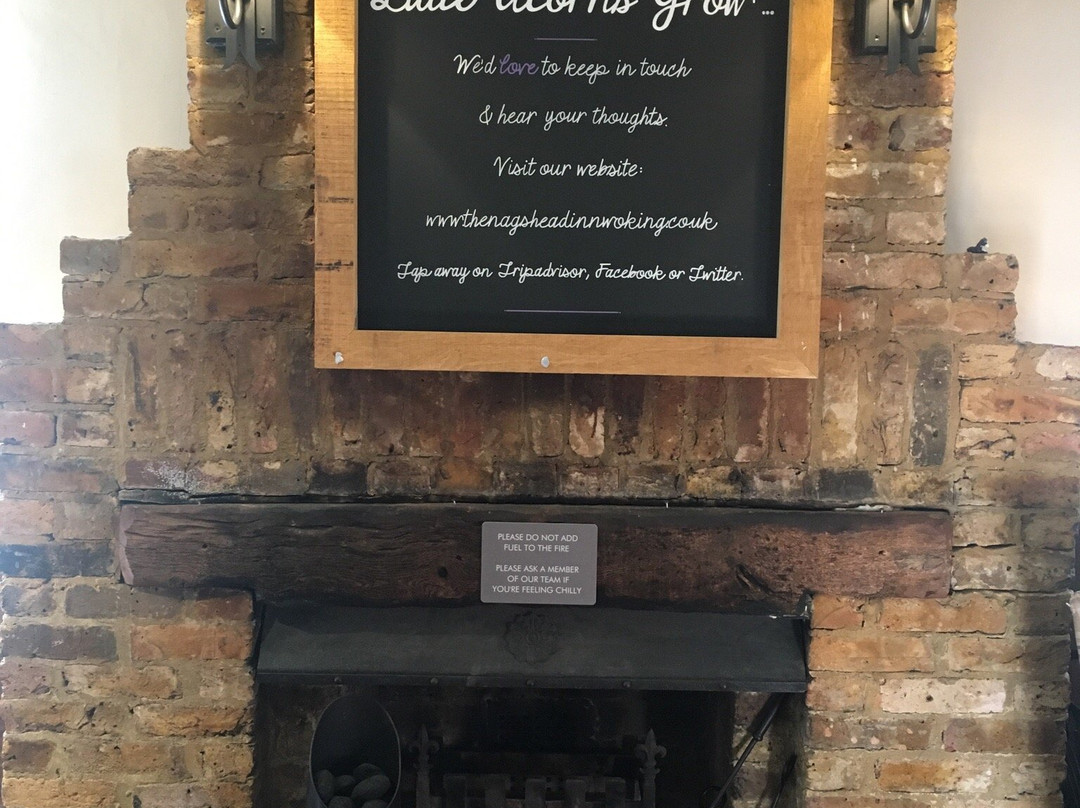 Little acorns grow...
We'd love to keep in touch
& hear your thoughts.
Visit our website:
www.thenagsheadinnwoking.co.uk
Tap away on Tripadvisor, Facebook or Twitter.
PLEASE DO NOT ADD
FUEL TO THE FIRE
PLEASE ASK A MEMBER
OF OUR TEAM IF
YOU'RE FEELING CHILLY